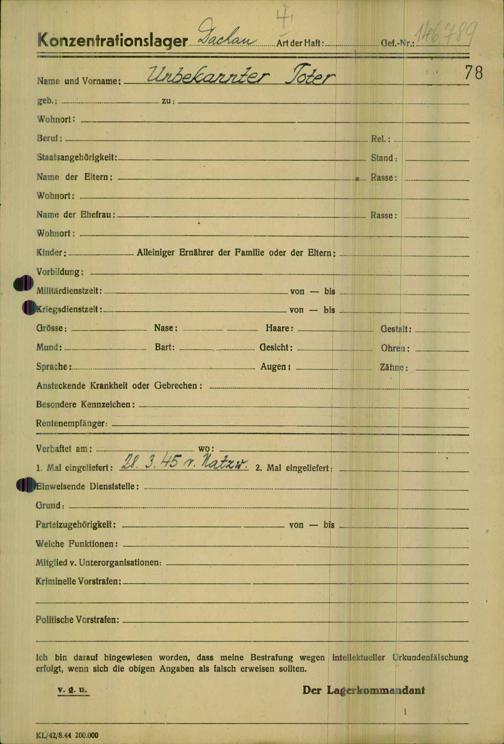 4
Konzentrationslager Dachau Art der Haft: Gef.-Nr.: 146789
78
Name und Vorname: Unbekannter Toter
geb.: zu:
Wohnort:
Beruf: Rel.:
Staatsangehörigkeit: Stand:
Name der Eltern: Rasse:
Wohnort:
Name der Ehefrau: Rasse:
Wohnort:
Kinder: Alleiniger Ernährer der Familie oder der Eltern:
Vorbildung:
Militärdienstzeit: von — bis
Kriegsdienstzeit: von — bis
Grösse: Nase: Haare: Gestalt:
Mund: Bart: Gesicht: Ohren:
Sprache: Augen: Zähne:
Ansteckende Krankheit oder Gebrechen:
Besondere Kennzeichen:
Rentenempfänger:
Verhaftet am: wo:
1. Mal eingeliefert: 28. 3. 45 v. Natzw. 2. Mal eingeliefert:
Einweisende Dienststelle:
Grund:
Parteizugehörigkeit: von — bis
Welche Funktionen:
Mitglied v. Unterorganisationen:
Kriminelle Vorstrafen:
Politische Vorstrafen:
Ich bin darauf hingewiesen worden, dass meine Bestrafung wegen intellektueller Urkundenfälschung
erfolgt, wenn sich die obigen Angaben als falsch erweisen sollten.
v. g. u. Der Lagerkommandant
KL/42/8.44 200.000